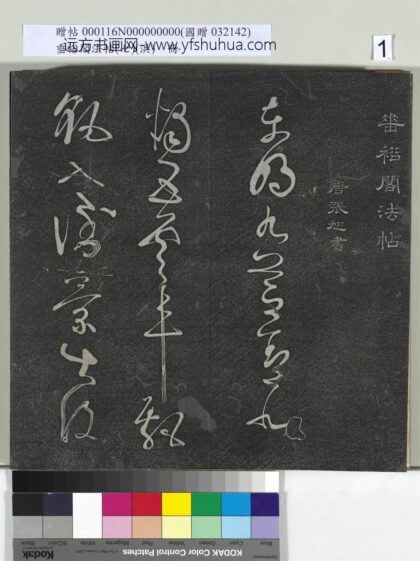 贈帖 000116N000000000(國贈 032142)
远方书画网 www.yfshuhua.com
1
垂裕閣法帖
唐張旭書
東明九芝蓋北
燭五雲車飄
飖入倒景出没
Kodak
KODAK Color Control Patches
Blue
Cyan
Green
Yellow
Red
Magenta
White
3/Color
Black